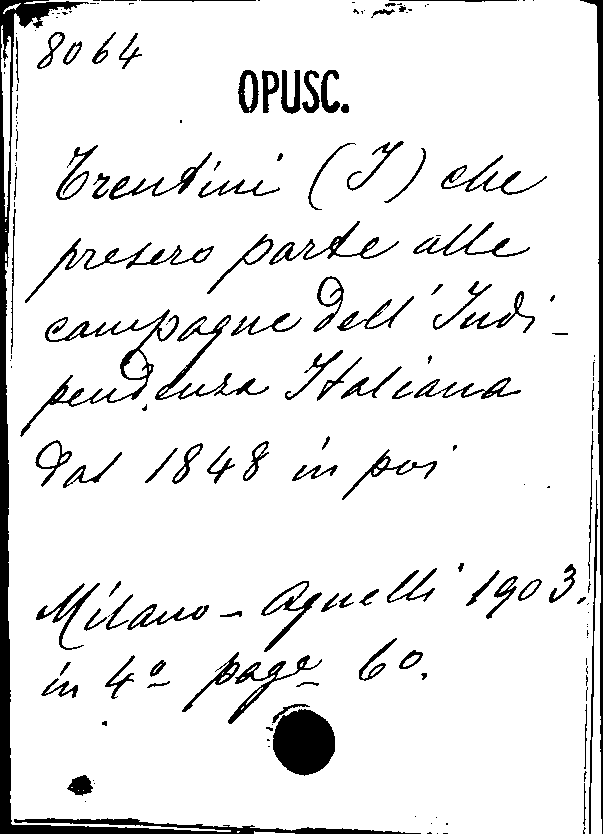 8064
OPUSC.
Trentini (I) che
presero parte alle
campagne dell' Indi-
pendenza Italiana
dal 1848 in poi
Milano - Agnelli 1903.
in 4º page 60.